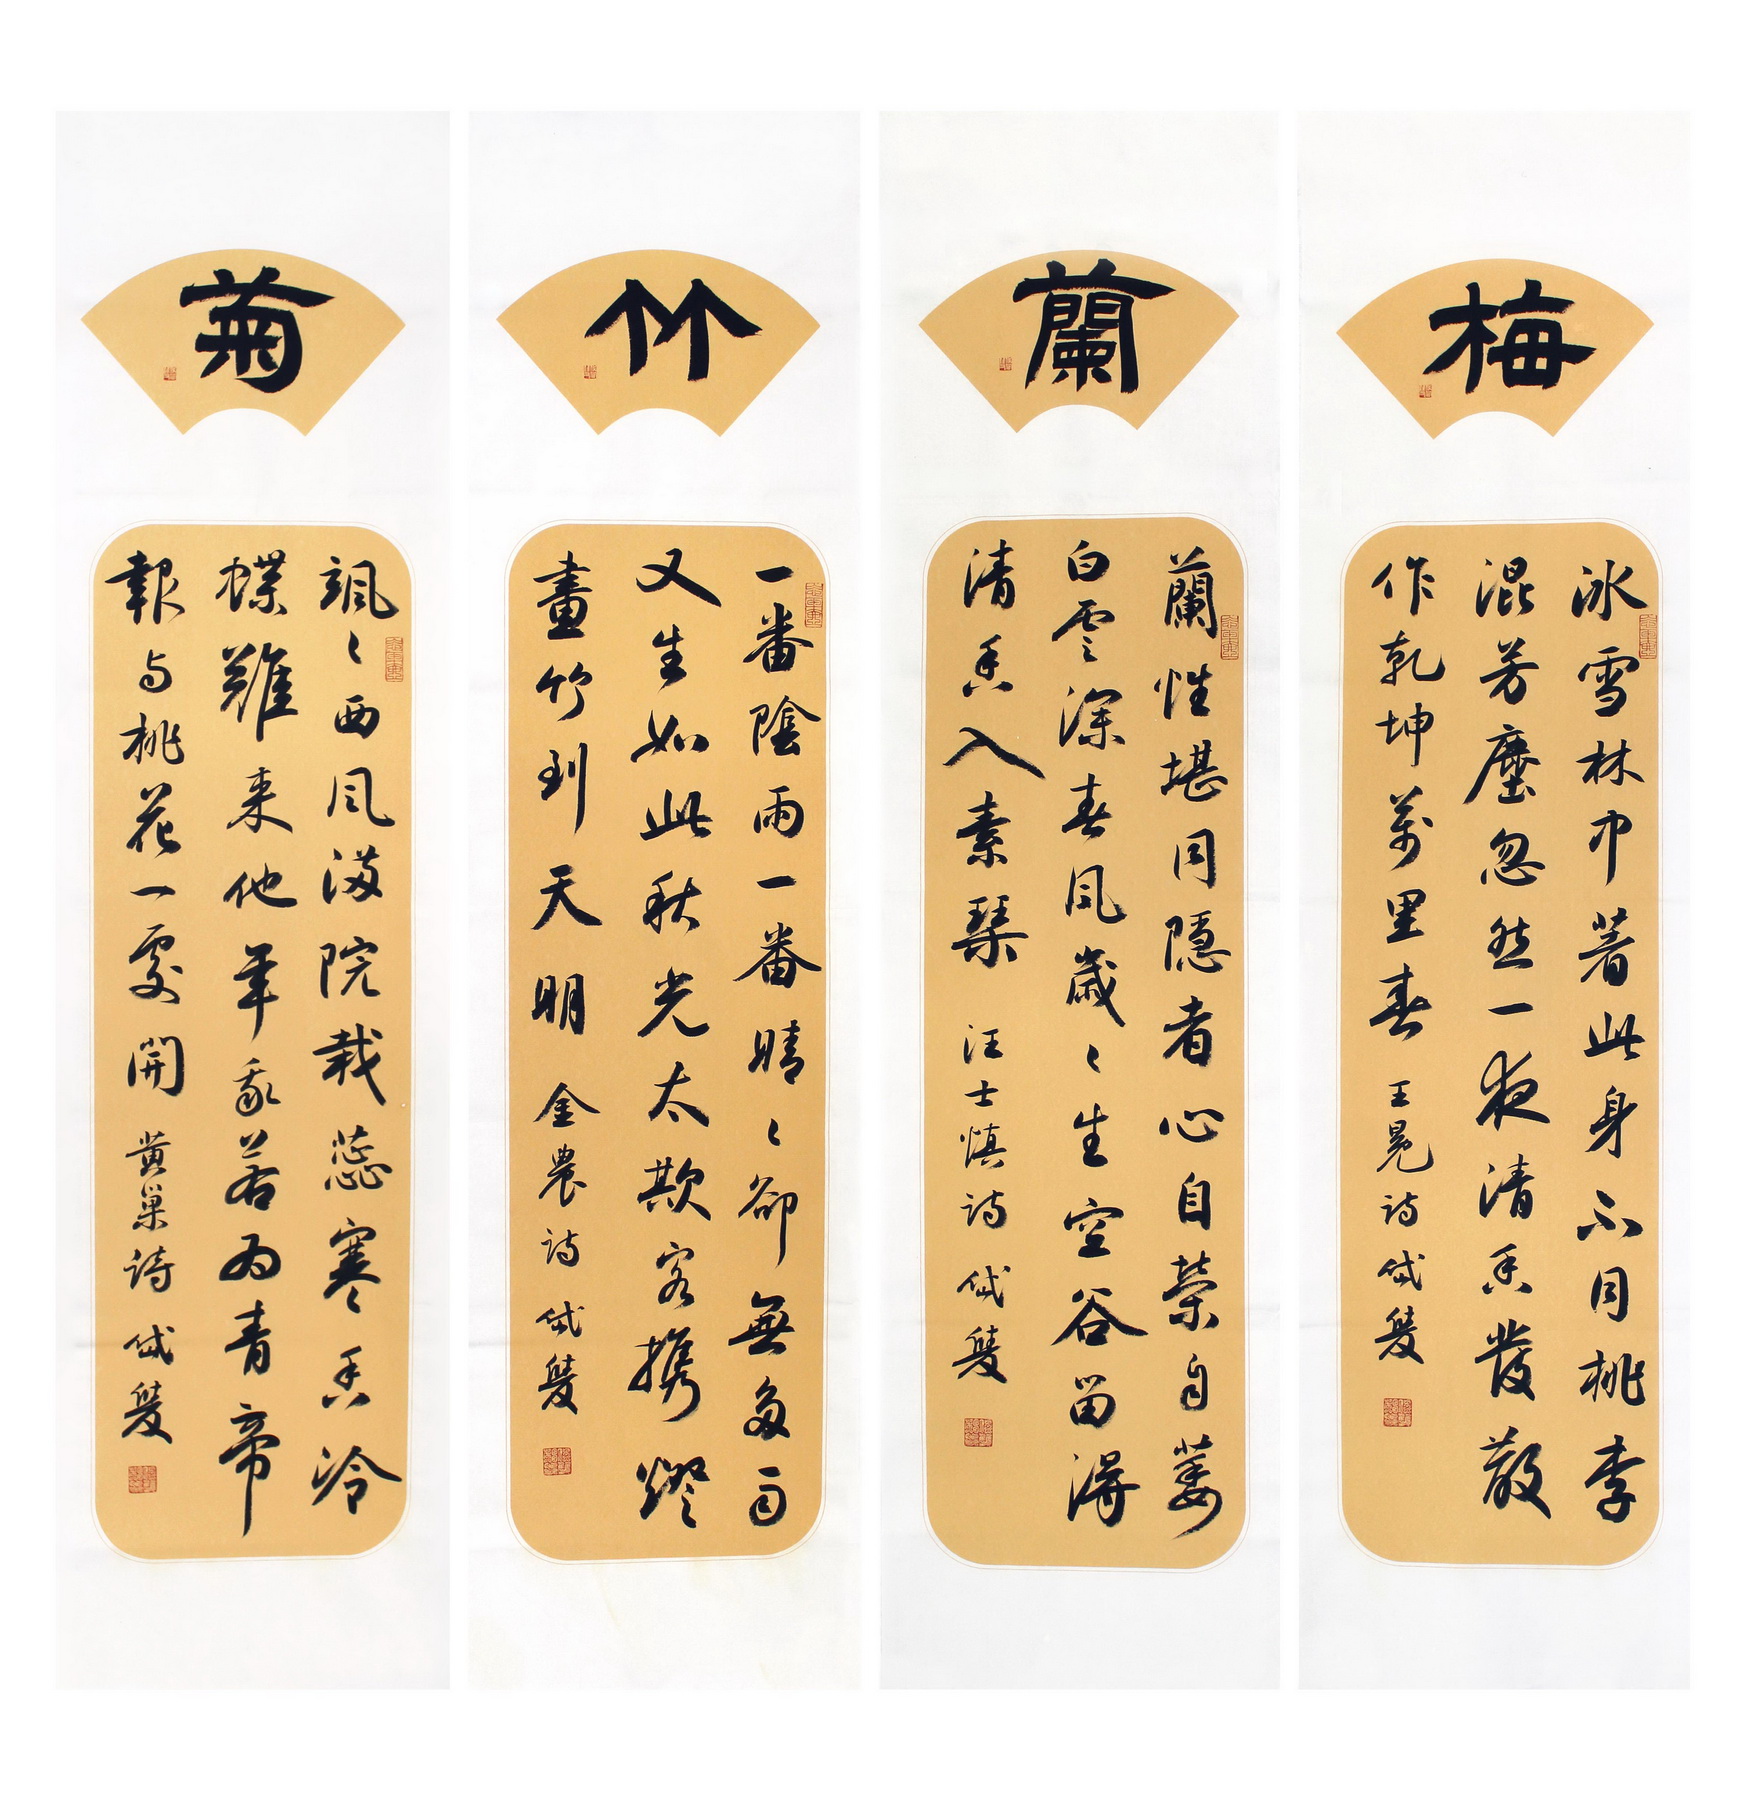 梅
冰雪林中著此身不同桃李
混芳塵忽然一夜清香發散
作乾坤萬里春 王冕詩 岱
蘭
蘭性堪同隱者心自榮自萎
白雲深春風歲々生空谷留得
清香入素琴 汪士慎詩 岱
竹
一番陰雨一番晴々卻無多雨
又生如此秋光太欺客携燈
畫竹到天明 金農詩 岱
菊
颯々西風滿院栽蕊寒香冷
蝶難来他年我若為青帝
報与桃花一處開 黄巢詩 岱